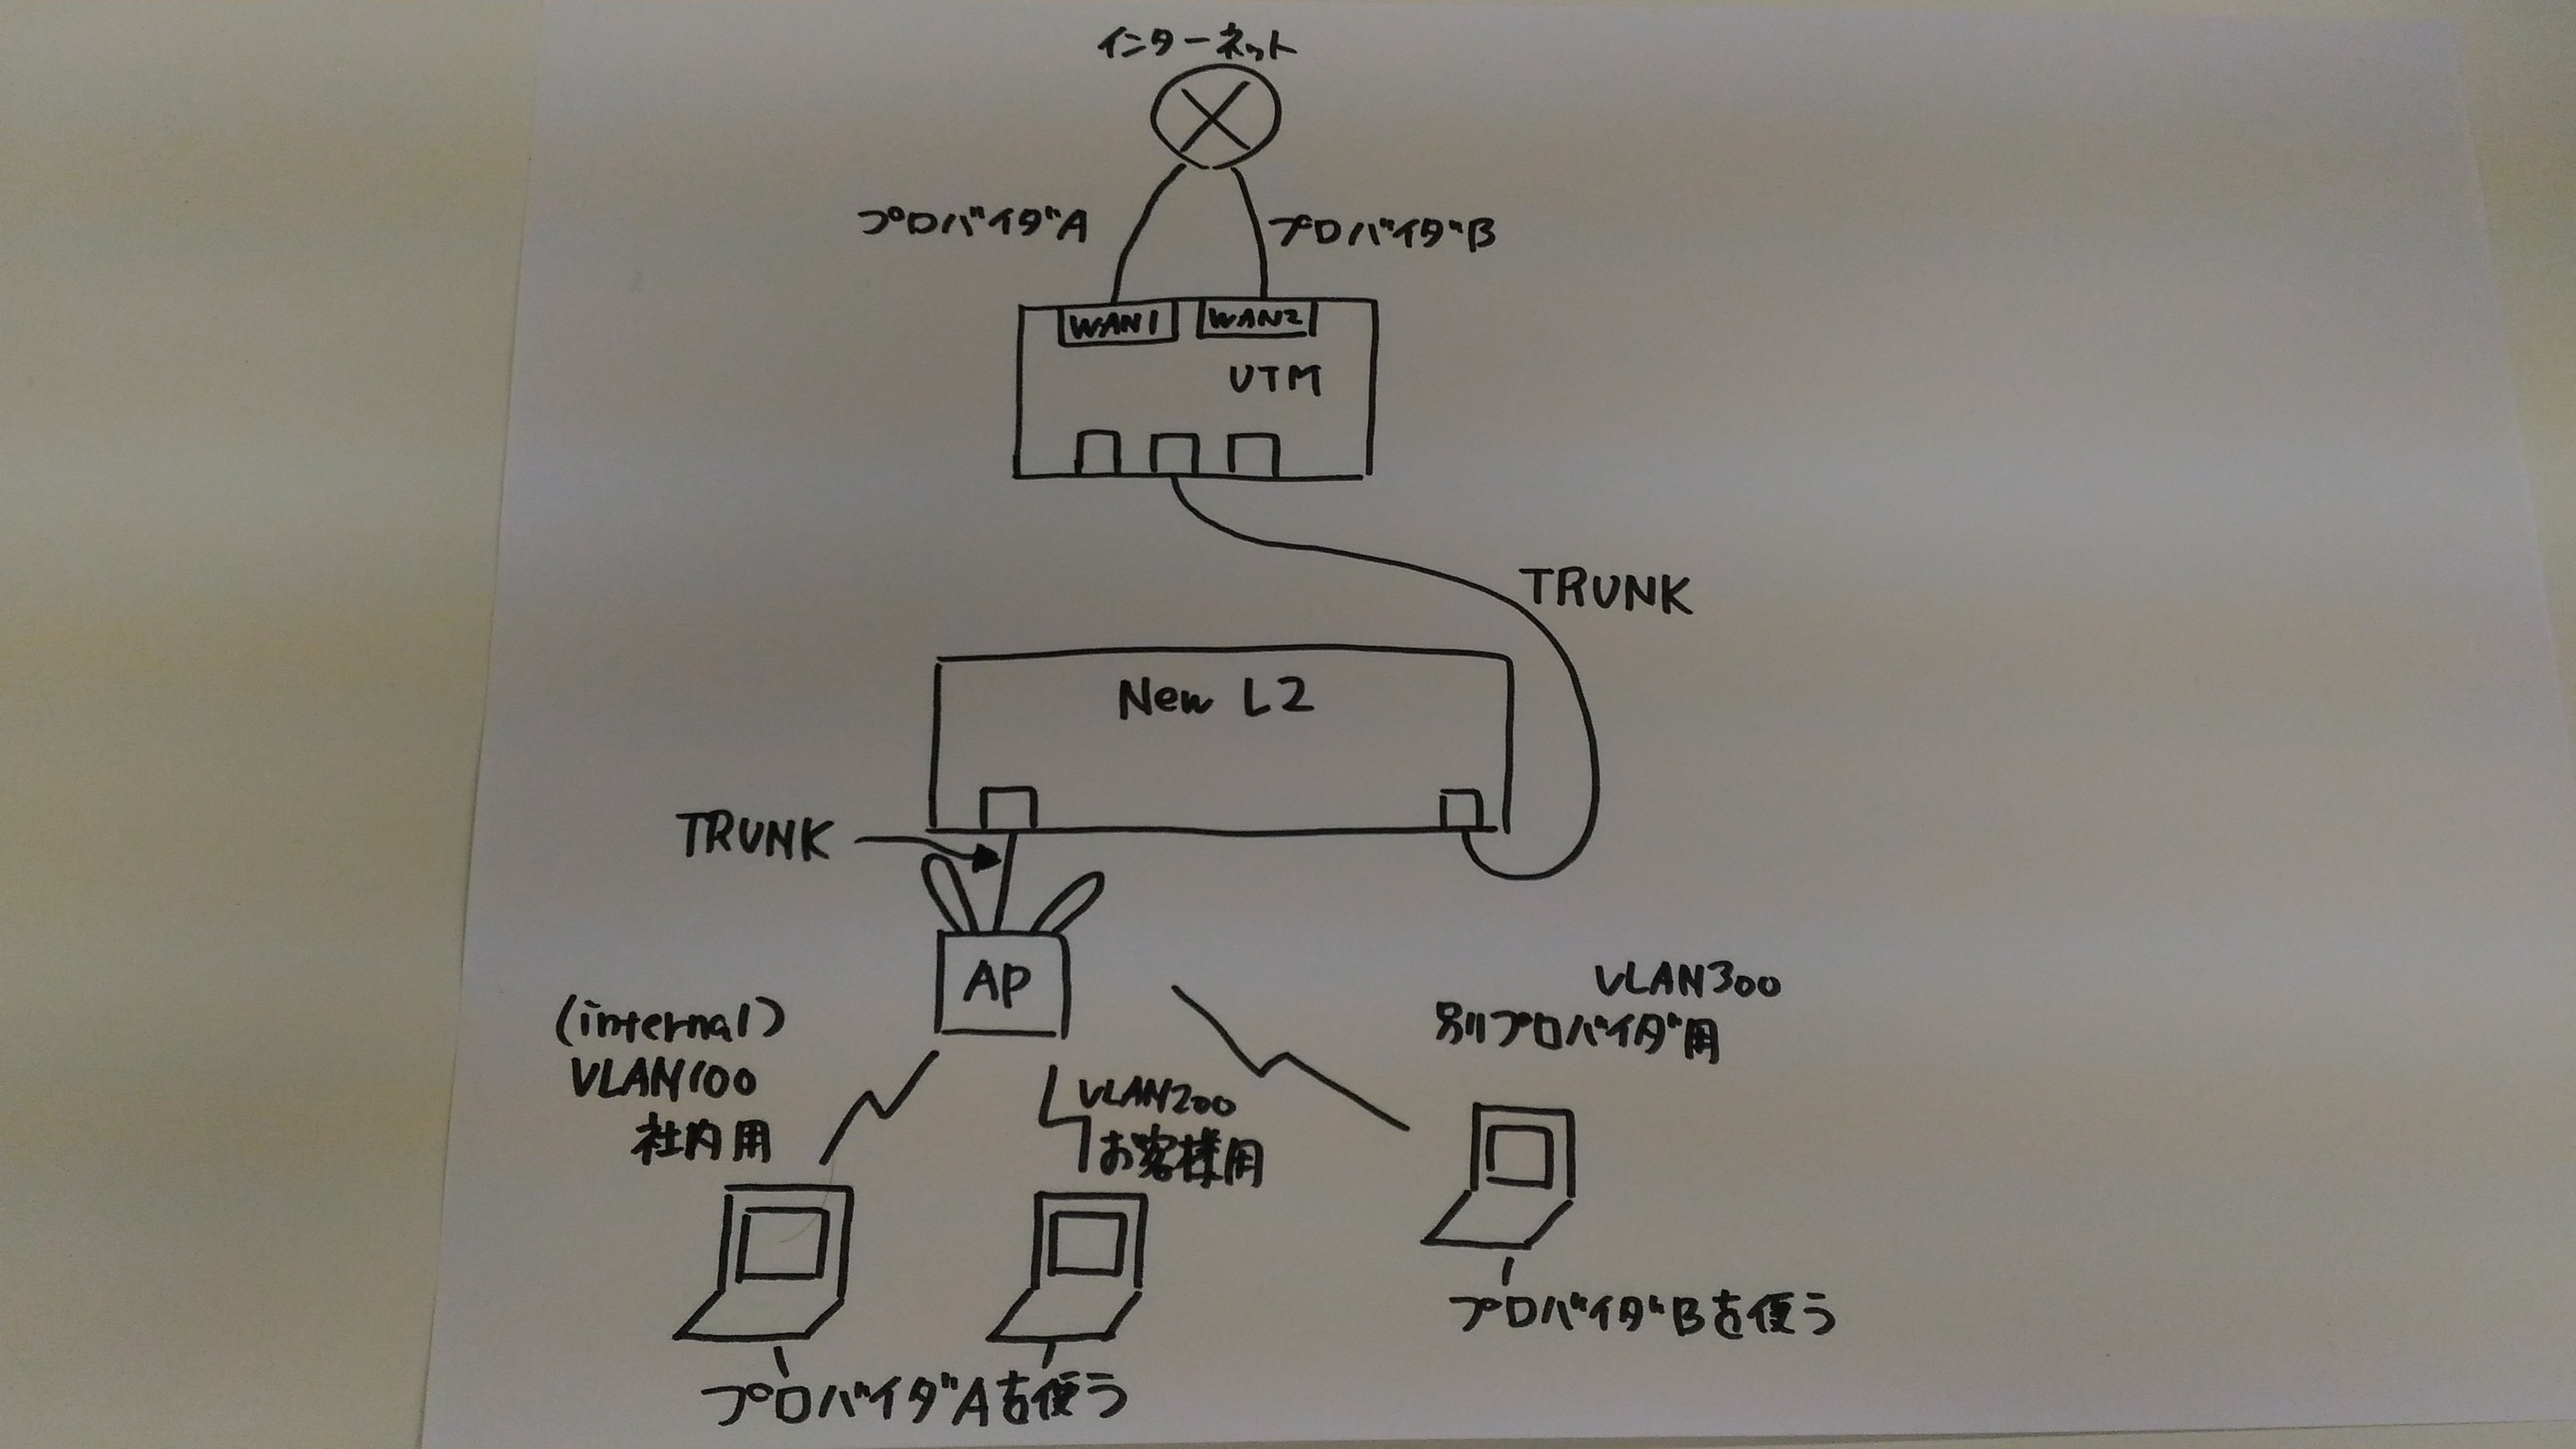 インターネット
プロバイダA
プロバイダB
WAN1
WAN2
UTM
TRUNK
New L2
TRUNK
AP
(internal)
VLAN100
社内用
VLAN200
お客様用
VLAN300
別プロバイダ用
プロバイダAを使う
プロバイダBを使う